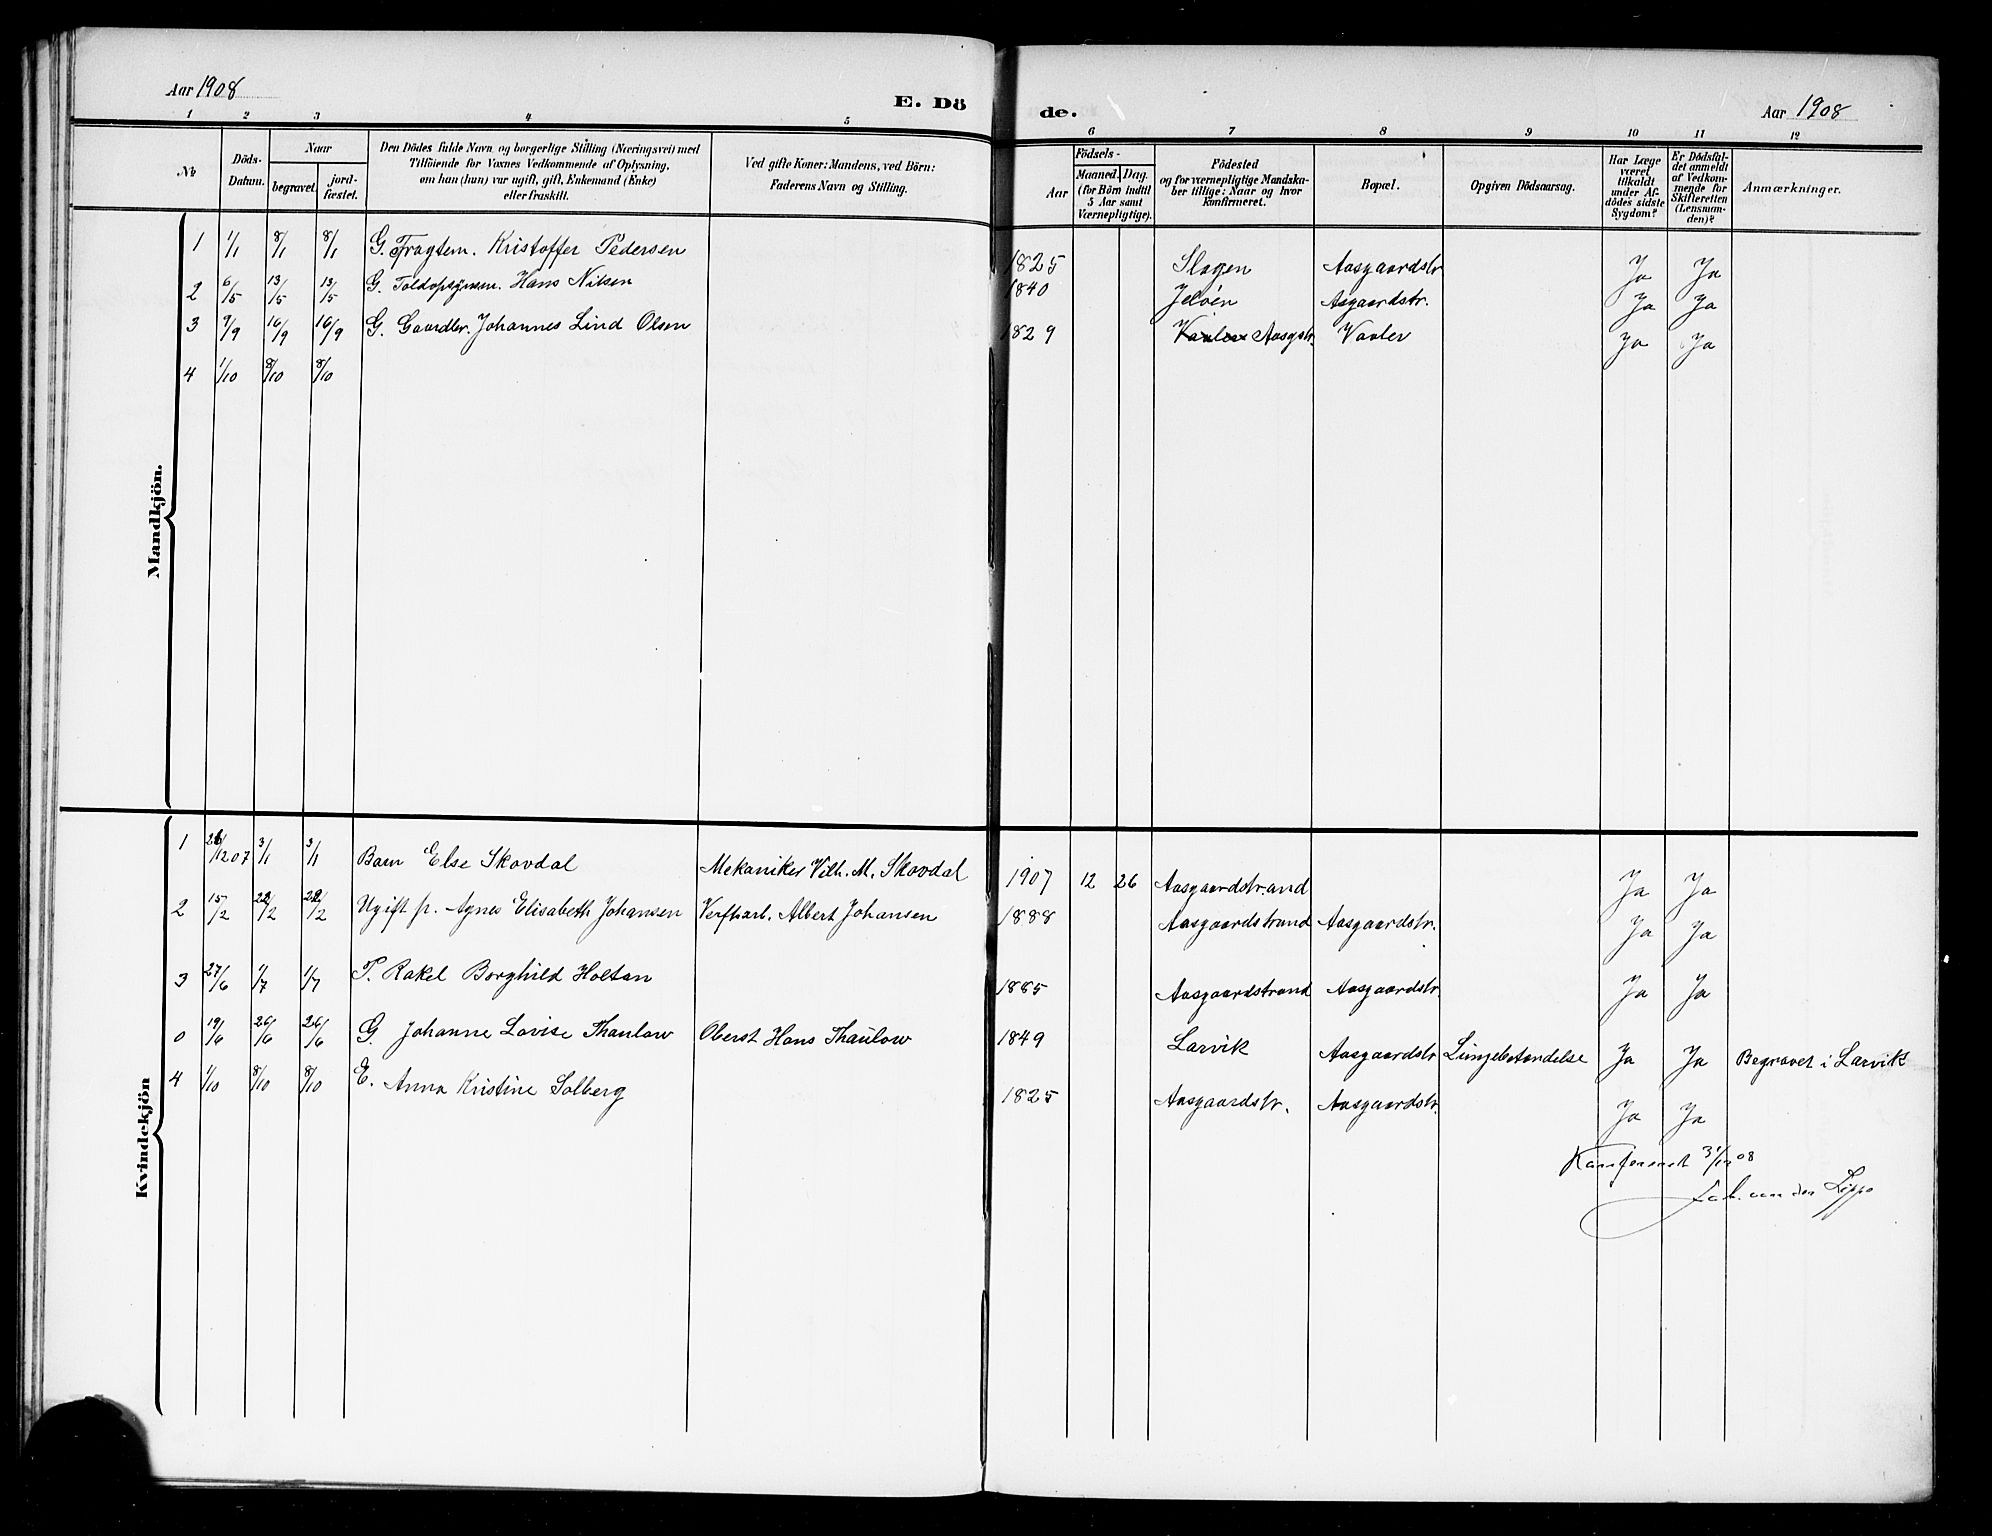 Aar 1908
E. Dö
de.
Aar 1908
1 2 3 4 5 6 7 8 9 10 11 12
No
Döds-
Datum.
Naar
begravet.
jord-
fæstet.
Den Dödes fulde Navn og borgerlige Stilling (Næringsvei) med
Tilföiende for Voxnes Vedkommende af Oplysning,
om han (hun) var ugift, gift, Enkemand (Enke)
eller fraskilt.
Ved gifte Koner: Mandens, ved Börn:
Faderens Navn og Stilling.
Födsels-
Aar
Maaned. Dag.
(for Börn indtil
5 Aar samt
Værnepligtige).
Födested
og for værnepligtige Mandska-
ber tillige: Naar og hvor
konfirmeret.
Bopæl.
Opgiven Dödsaarsag.
Har Læge
været
tilkaldt
under Af-
dödes sidste
Sygdom?
Er Dödsfal-
det anmeldt
af Vedkom-
mende for
Skifteretten
(Lensman-
den)?
Anmærkninger.
Mandkjön.
1 1/1 8/1 8/1 G. Fragtem. Kristoffer Pedersen 1825 Slagen Aasgaardstr. Ja Ja
2 6/5 13/5 13/5 G. Toldopsynsm. Hans Nilsen 1840 Jelöen Asgaardstr. Ja Ja
3 9/9 16/9 16/9 G. Gaardbr. Johannes Lind Olsen 1829 Vaaler Aasgstr. Vaaler Ja Ja
4 1/10 8/10 8/10
Kvindekjön
1 26/12 07 3/1 3/1 Barn Else Skovdal Mekaniker Vilh. M. Skovdal 1907 12 26 Aasgaardstrand Ja Ja
2 15/2 22/2 22/2 Ugift p. Agnes Elisabeth Johansen Verftarb. Albert Johansen 1888 Aasgaardstrand Aasgaardstr. Ja Ja
3 27/6 1/7 1/7 P. Rakel Borghild Holtan 1885 Aasgaardstrand Aasgaardstr. Ja Ja
0 19/6 26/6 26/6 G. Johanne Lovise Thaulow Oberst Hans Thaulow 1849 Larvik Aasgaardstr. Lungebetændelse Ja Ja Begravet i Larvik
4 1/10 8/10 8/10 E. Anna Kristine Solberg 1825 Aasgaardstr. Aasgaardstr. Ja Ja
Konfereret 31/12 08
van der Lippe